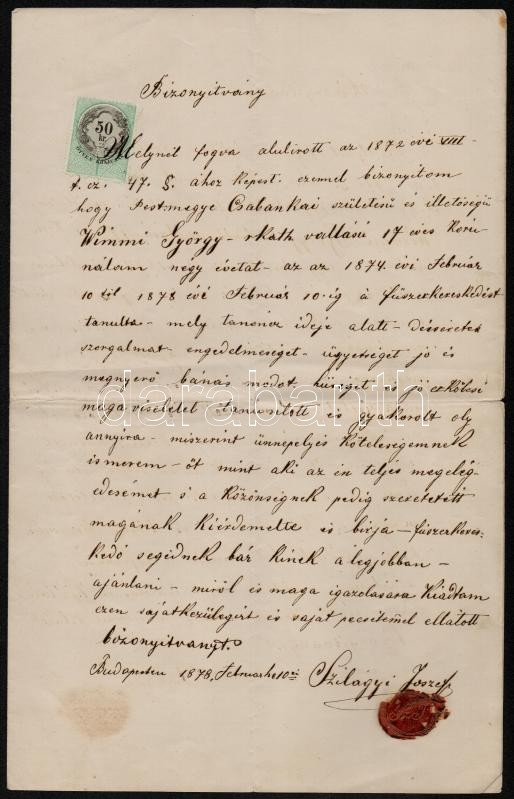 Bizonyitvány
50
kr.
Melynél fogva alulirott az 1872 évi VIII
t. cz. 47. §. ához képest. ezennel bizonyitom
hogy Pestmegye Csabankai születésü és illetöségü
Wimmi György - rkath vallásu 17 eves Koru
nálam négy évetat - az az 1874. évi Február
10 töl 1878 évi Február 10-ig a füszerkereskedést
tanulta - mely tanoncz ideje alatt - désséretes
szorgalmat - engedelmeséget - ügyetséget jó és
megnyerö bánás modot, hüséget és jó erkölcsi
maga viseletet tanusitott és gyakorolt oly
annyira - miszerint ünnepelyes Köteleségemnek
ismerem - öt mint aki az én teljes megelég-
edésémet s a Közönségnek pedig szeretetétt
magának Kiérdemelte és birja - füszerkeres-
kedö segédnek bár Kinek a legjobban -
ajánlani - miröl és maga igazolására Kiadtam
ezen sajátkezülegirt és saját pecsétemel ellátott
bizonyitványt.
Budapesten 1878, Februarhe 10én
Szilágyi Joszef
darabanth